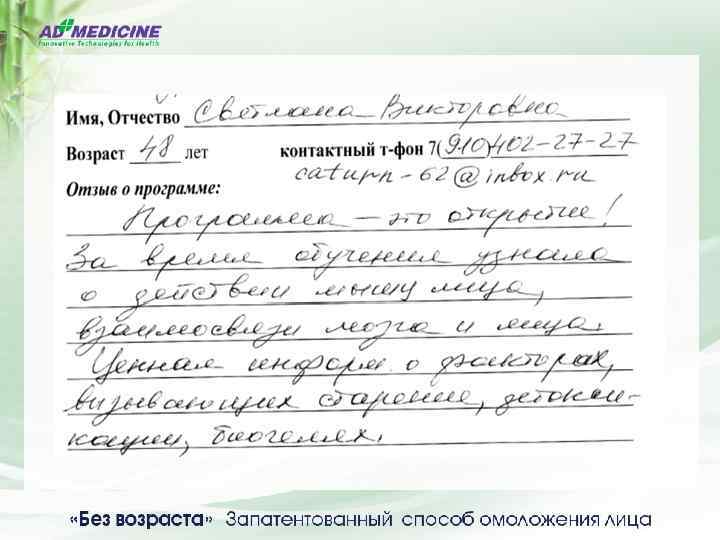 AD MEDICINE
Innovative Technologies for Health
Имя, Отчество Светлана Викторовна
Возраст 48 лет контактный т-фон 7(910)402-27-27
caturn-62@inbox.ru
Отзыв о программе:
Программа – это открытие!
За время обучения узнала
о действии мышц лица,
взаимосвязи мозга и лица.
Ценная информ. о факторах,
вызывающих старение, детокси-
кации, биогелях.
«Без возраста» Запатентованный способ омоложения лица